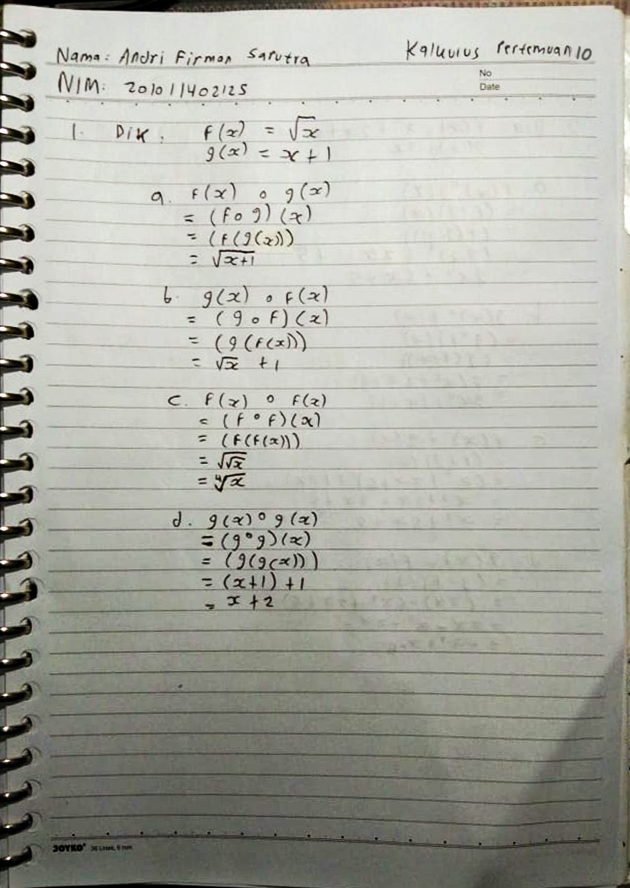 Nama: Andri Firman Saputra
Kalkulus Pertemuan 10
NIM: 201011402125
No
Date
1. Dik: f(x) = √x
g(x) = x + 1
a. f(x) ∘ g(x)
= (f∘g)(x)
= (f(g(x))
= √(x+1)
b. g(x) ∘ f(x)
= (g∘f)(x)
= (g(f(x))
= √x + 1
c. f(x) ∘ f(x)
= (f∘f)(x)
= (f(f(x))
= √√x
= ∜x
d. g(x) ∘ g(x)
= (g∘g)(x)
= (g(g(x))
= (x+1) + 1
= x + 2
JOYKO 36 Lines, 6 mm